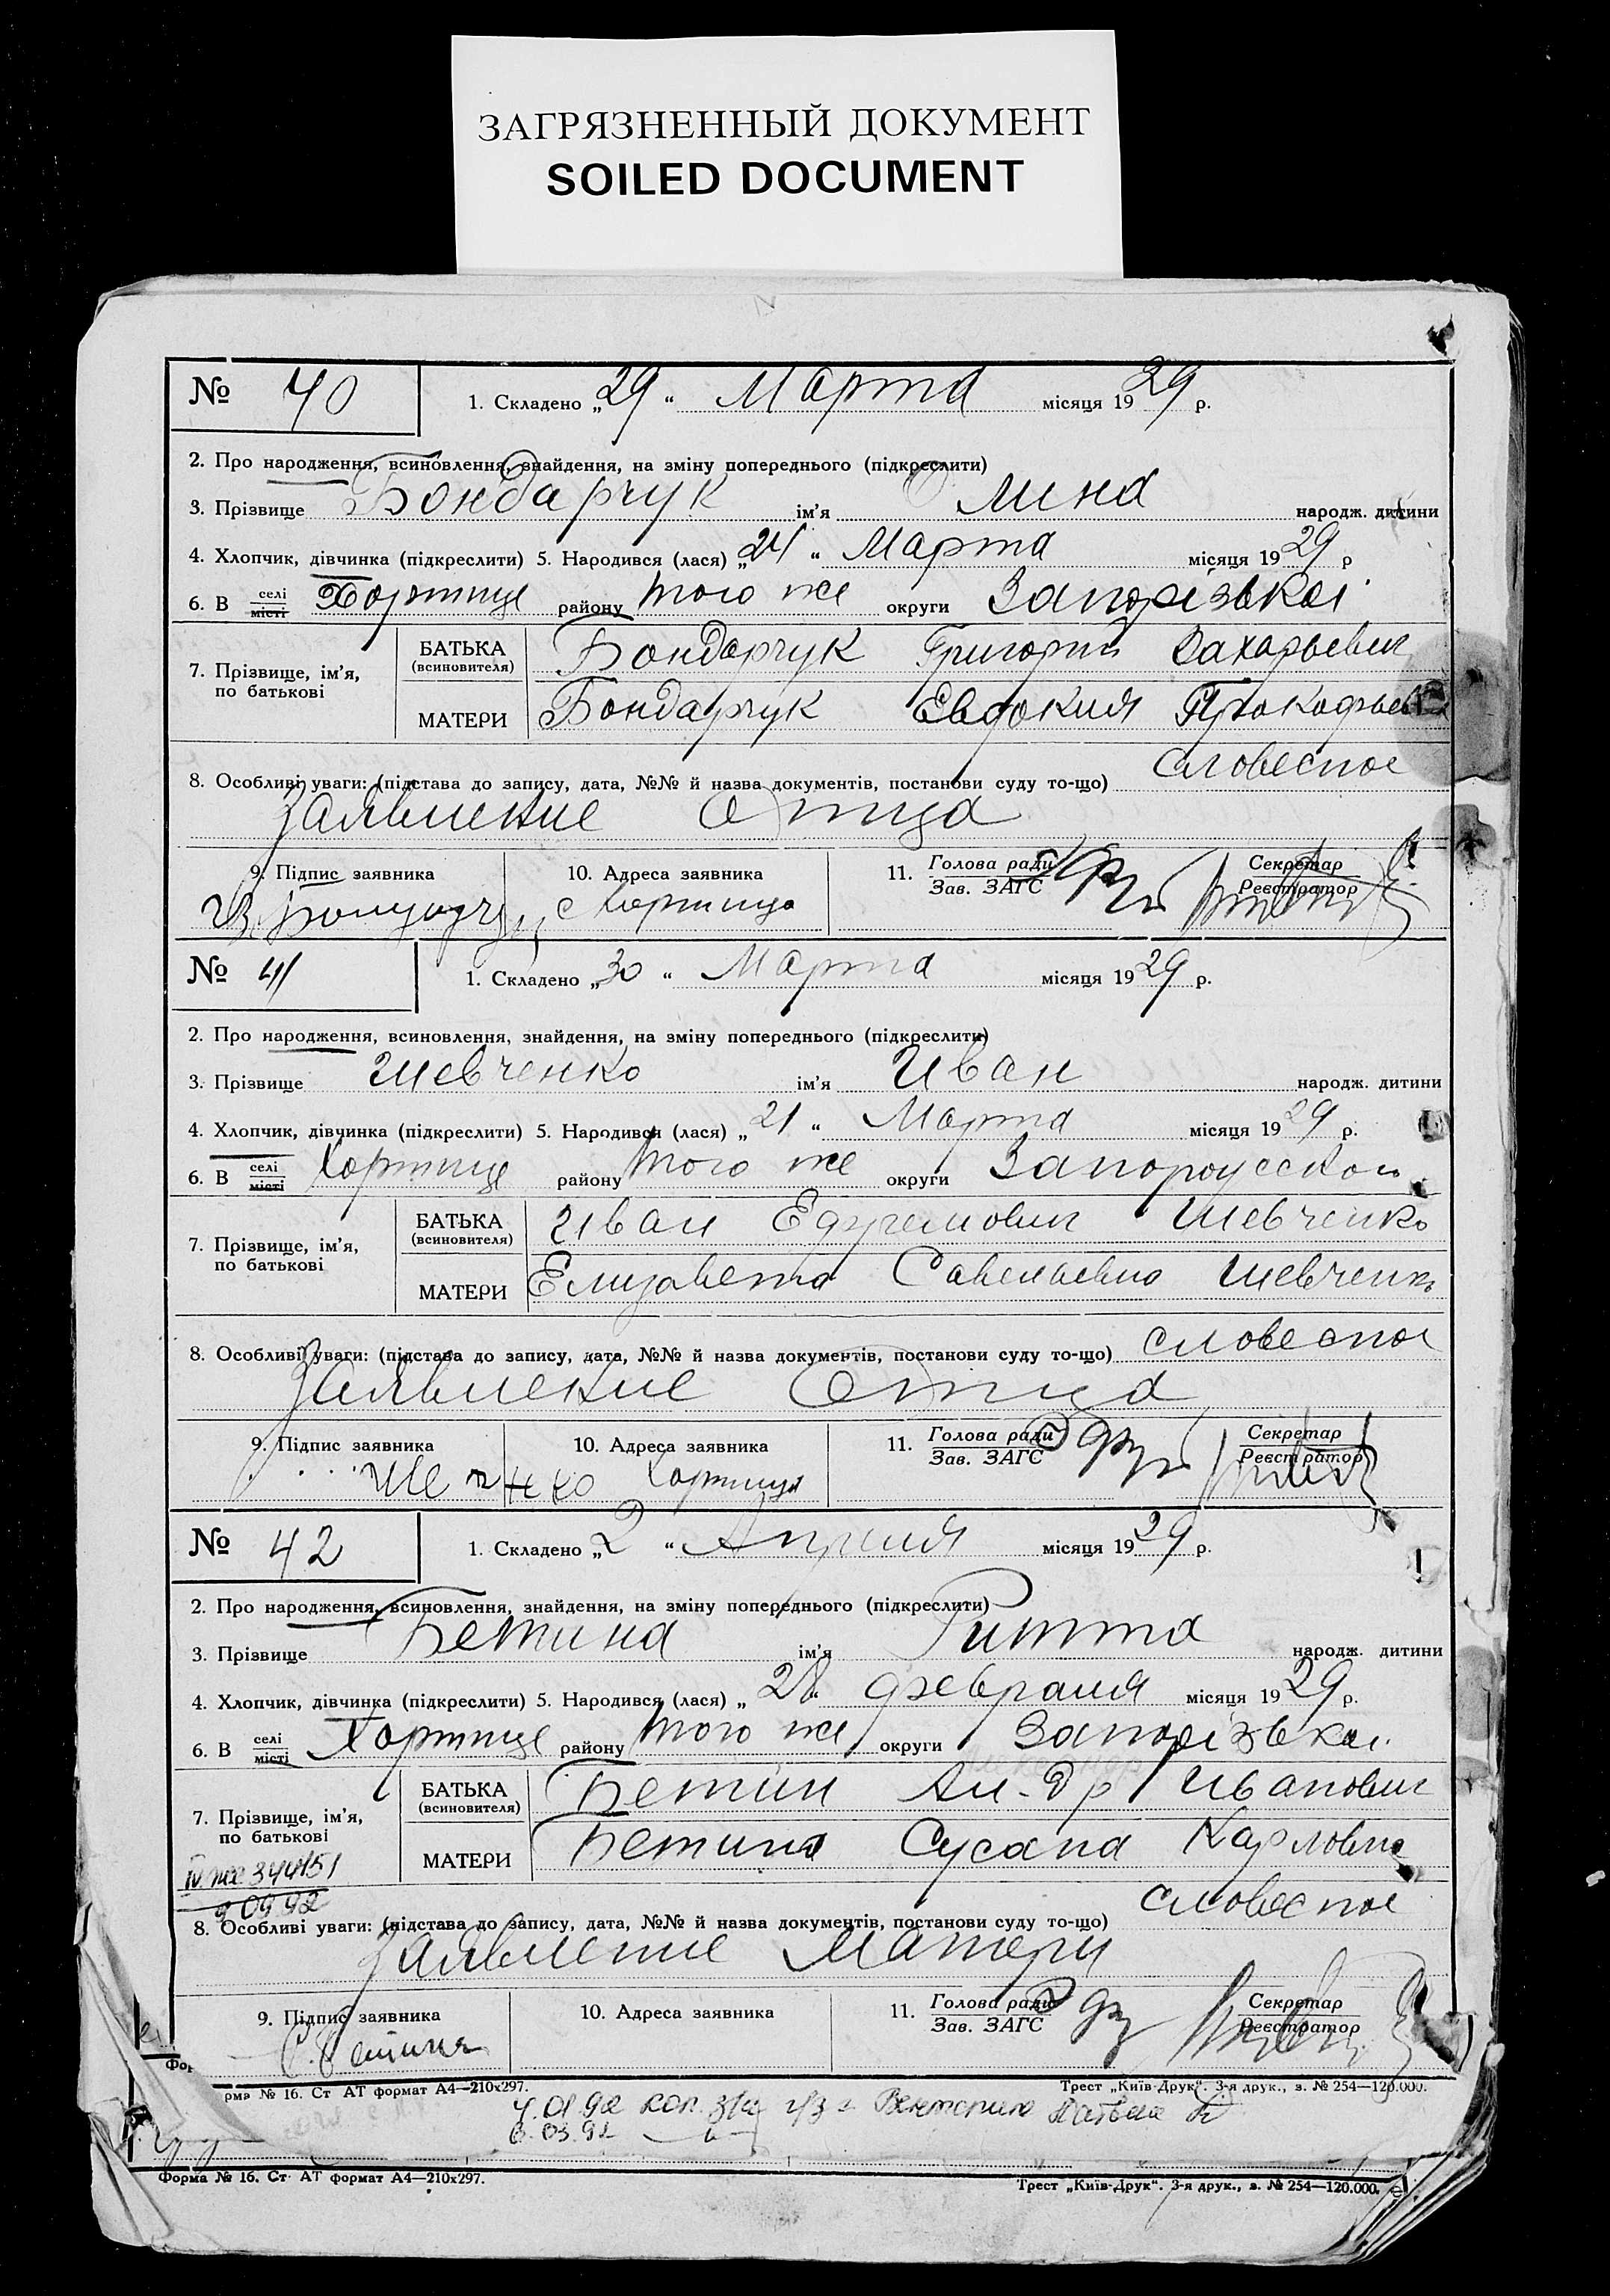 ЗАГРЯЗНЕННЫЙ ДОКУМЕНТ
SOILED DOCUMENT
№ 40 1. Складено „29“ Марта місяця 1929 р.
2. Про народження, всиновлення, знайдення, на зміну попереднього (підкреслити)
3. Прізвище Бондарчук ім'я Олина народж. дитини
4. Хлопчик, дівчинка (підкреслити) 5. Народився (лася) „24“ Марта місяця 1929 р
6. В селі місті Хортице району того же округи Запорізькоі
7. Прізвище, ім'я, по батькові
БАТЬКА (всиновителя) Бондарчук Григорий Захарьевич
МАТЕРИ Бондарчук Евдокия
8. Особливі уваги: (підстава до запису, дата, №№ й назва документів, постанови суду то-що) словесное
заявление Отца
9. Підпис заявника 10. Адреса заявника 11. Голова ради Зав. ЗАГС Секретар Реєстратор
с Хортица
№ 41 1. Складено „30“ Марта місяця 1929 р.
2. Про народження, всиновлення, знайдення, на зміну попереднього (підкреслити)
3. Прізвище Шевченко ім'я Иван народж. дитини
4. Хлопчик, дівчинка (підкреслити) 5. Народився (лася) „21“ Марта місяця 1929 р.
6. В селі місті Хортице району того же округи
7. Прізвище, ім'я, по батькові
БАТЬКА (всиновителя) Иван Ефремович Шевченко
МАТЕРИ Елизавета Савельевна Шевченко
8. Особливі уваги: (підстава до запису, дата, №№ й назва документів, постанови суду то-що) словесное
заявление Отца
9. Підпис заявника 10. Адреса заявника 11. Голова ради Зав. ЗАГС Секретар Реєстратор
Хортица
№ 42 1. Складено „2“ Апреля місяця 1929 р.
2. Про народження, всиновлення, знайдення, на зміну попереднього (підкреслити)
3. Прізвище Бетина ім'я Ритта народж. дитини
4. Хлопчик, дівчинка (підкреслити) 5. Народився (лася) „28“ февраля місяця 1929 р.
6. В селі місті Хортице району того же округи Запорізькоі
7. Прізвище, ім'я, по батькові
БАТЬКА (всиновителя) Бетин Ал-др Иванович
МАТЕРИ Бетина Сусана Карловна
344151
8. Особливі уваги: (підстава до запису, дата, №№ й назва документів, постанови суду то-що) словесное
заявление Матери
9. Підпис заявника 10. Адреса заявника 11. Голова ради Зав. ЗАГС Секретар Реєстратор
С. Бетина
рма № 16. Ст АТ формат А4—210х297. Трест „Київ-Друк“. 3-я друк., з. № 254—120.000.
Форма № 16. Ст АТ формат А4—210х297. Трест „Київ-Друк“. 3-я друк., з. № 254—120.000.